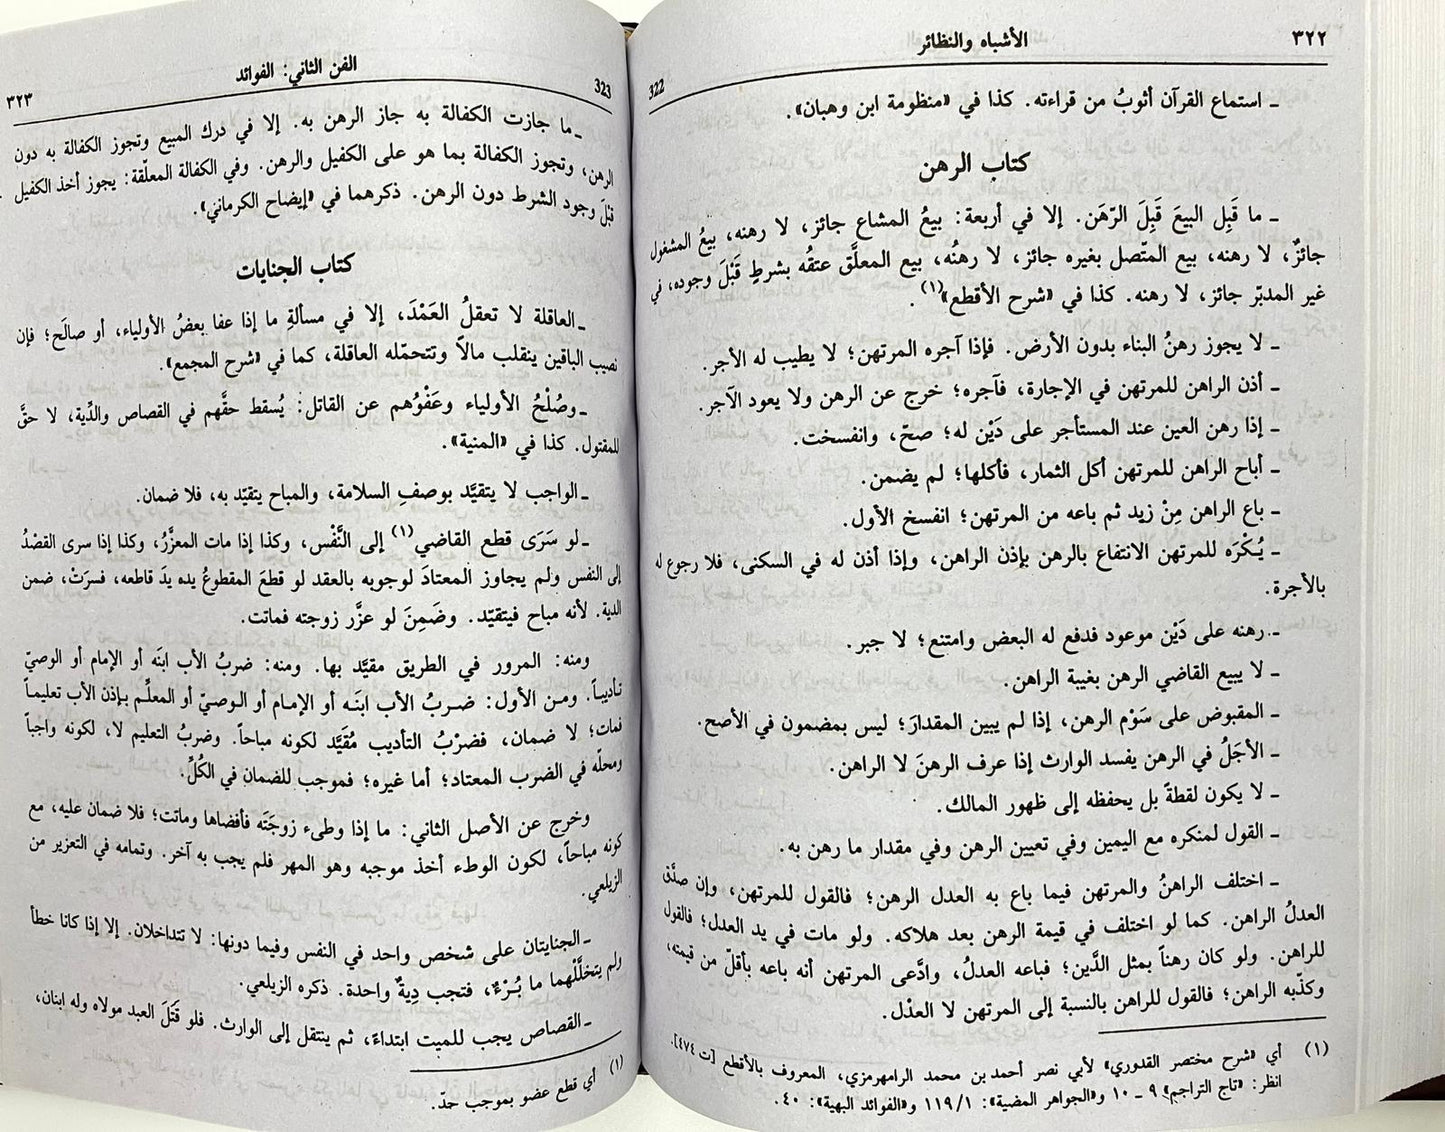 ٣٢٢
الأشباه والنظائر
322
ـ استماع القرآن أثوبُ من قراءته. كذا في «منظومة ابن وهبان».
كتاب الرهن
ـ ما قَبِل البيعَ قَبِلَ الرّهَن. إلا في أربعة: بيعُ المشاع جائز، لا رهنه، بيعُ المشغول
جائزٌ، لا رهنه، بيع المتّصل بغيره جائز، لا رهنُه، بيع المعلَّق عتقُه بشرطٍ قَبْلَ وجوده، في
غير المدبّر جائز، لا رهنه. كذا في «شرح الأقطع»(١).
ـ لا يجوز رهنُ البناء بدون الأرض. فإذا آجره المرتهن؛ لا يطيب له الأجر.
ـ أذن الراهن للمرتهن في الإجارة، فآجره؛ خرج عن الرهن ولا يعود الآجر.
ـ إذا رهن العين عند المستأجر على دَيْن له؛ صحّ، وانفسخت.
ـ أباح الراهن للمرتهن أكل الثمار، فأكلها؛ لم يضمن.
ـ باع الراهن مِنْ زيد ثم باعه من المرتهن؛ انفسخ الأول.
ـ يُكْرَه للمرتهن الانتفاع بالرهن بإذن الراهن، وإذا أذن له في السكنى، فلا رجوع له
بالأجرة.
ـ رهنه على دَيْن موعود فدفع له البعض وامتنع؛ لا جبر.
ـ لا يبيع القاضي الرهن بغيبة الراهن.
ـ المقبوض على سَوْم الرهن، إذا لم يبين المقدارَ؛ ليس بمضمون في الأصح.
ـ الأجَلُ في الرهن يفسد الوارث إذا عرف الرهنَ لا الراهن.
ـ لا يكون لقطةً بل يحفظه إلى ظهور المالك.
ـ القول لمنكره مع اليمين وفي تعيين الرهن وفي مقدار ما رهن به.
ـ اختلف الراهنُ والمرتهن فيما باع به العدل الرهن؛ فالقول للمرتهن، وإن صدَّق
العدلُ الراهن. كما لو اختلف في قيمة الرهن بعد هلاكه. ولو مات في يد العدل؛ فالقول
للراهن. ولو كان رهناً بمثل الدَّين؛ فباعه العدلُ، وادَّعى المرتهن أنه باعه بأقلّ من قيمته،
وكذّبه الراهن؛ فالقول للراهن بالنسبة إلى المرتهن لا العدْل.
(١) أي «شرح مختصر القدوري» لأبي نصر أحمد بن محمد الرامهرمزي، المعروف بالأقطع [ت ٤٧٤].
انظر: «تاج التراجم» ٩ ـ ١٠ و«الجواهر المضية»: ١/ ١١٩ و«الفوائد البهية»: ٤٠.
323
الفن الثاني: الفوائد
٣٢٣
ـ ما جازت الكفالة به جاز الرهن به. إلا في درك المبيع وتجوز الكفالة به دون
الرهن، وتجوز الكفالة بما هو على الكفيل والرهن. وفي الكفالة المعلّقة: يجوز أخذ الكفيل
قبْلَ وجود الشرط دون الرهن. ذكرهما في «إيضاح الكرماني».
كتاب الجنايات
ـ العاقلة لا تعقلُ العَمْدَ، إلا في مسألةِ ما إذا عفا بعضُ الأولياء، أو صالَح؛ فإن
نصيب الباقين ينقلب مالاً وتتحمّله العاقلة، كما في «شرح المجمع».
ـ وصُلْحُ الأولياء وعَفْوُهم عن القاتل: يُسقط حقَّهم في القصاص والدِّية، لا حقَّ
للمقتول. كذا في «المنية».
ـ الواجب لا يتقيَّد بوصفِ السلامة، والمباح يتقيّد به، فلا ضمان.
ـ لو سَرَى قطع القاضي(١) إلى النَّفْس، وكذا إذا مات المعزَّرُ، وكذا إذا سرى القصْدُ
إلى النفس ولم يجاوز المعتادَ لوجوبه بالعقد لو قطعَ المقطوعُ يده يدَ قاطعه، فسرَتْ، ضمن
الدية. لأنه مباح فيتقيّد. وضَمِنَ لو عزَّر زوجته فماتت.
ومنه: المرور في الطريق مقيَّد بها. ومنه: ضربُ الأب ابنَه أو الإمام أو الوصيّ
تأديباً. ومن الأول: ضربُ الأب ابنَه أو الإمام أو الوصيّ أو المعلِّم بإذن الأب تعليماً
فمات؛ لا ضمان، فضرْبُ التأديب مُقَيَّد لكونه مباحاً. وضربُ التعليم لا، لكونه واجباً
ومحلّه في الضرب المعتاد؛ أما غيره؛ فموجب للضمان في الكُلِّ.
وخرج عن الأصل الثاني: ما إذا وطىء زوجَتَه فأفضاها وماتت؛ فلا ضمان عليه، مع
كونه مباحاً، لكون الوطء أخذ موجبه وهو المهر فلم يجب به آخر. وتمامه في التعزير من
الزيلعي.
ـ الجنايتان على شخص واحد في النفس وفيما دونها: لا تتداخلان. إلا إذا كانا خطأ
ولم يتخلَّلْهما ما بُرْءٌ، فتجب دِيةٌ واحدة. ذكره الزيلعي.
ـ القصاص يجب للميت ابتداءً، ثم ينتقل إلى الوارث. فلو قَتَلَ العبد مولاه وله ابنان،
(١) أي قطع عضو بموجب حدّ.